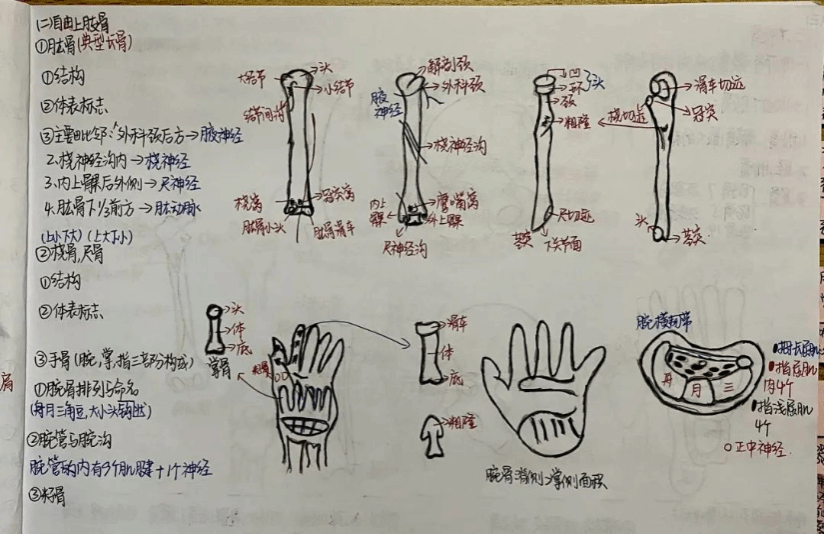 (二)自由上肢骨
①肱骨(典型长骨)
①结构
②体表标志
③主要毗邻:1.外科颈后方→腋神经
2.桡神经沟内→桡神经
3.内上髁后外侧→尺神经
4.肱骨下1/3前方→肱动脉
(上小下大)(上大下小)
②桡骨,尺骨
①结构
②体表标志
③手骨(腕,掌,指三部分构成)
①腕骨排列与命名
(舟月三角豆,大小头钩出)
②腕管与腕沟
腕管的内有9个肌腱+1个神经
③籽骨
大结节
头
小结节
结节间沟
桡窝
冠突窝
肱骨小头
肱骨滑车
解剖颈
外科颈
腋神经
桡神经沟
鹰嘴窝
内上髁
外上髁
尺神经沟
凹
环
头
颈
粗隆
尺切迹
茎突
下关节面
滑车切迹
冠突
桡切迹
头
茎突
头
体
底
掌骨
滑车
体
底
粗隆
腕骨背侧>掌侧面积
腕横韧带
舟
月
三
拇长屈肌
指屈肌
肉4个
指浅屈肌
4个
正中神经